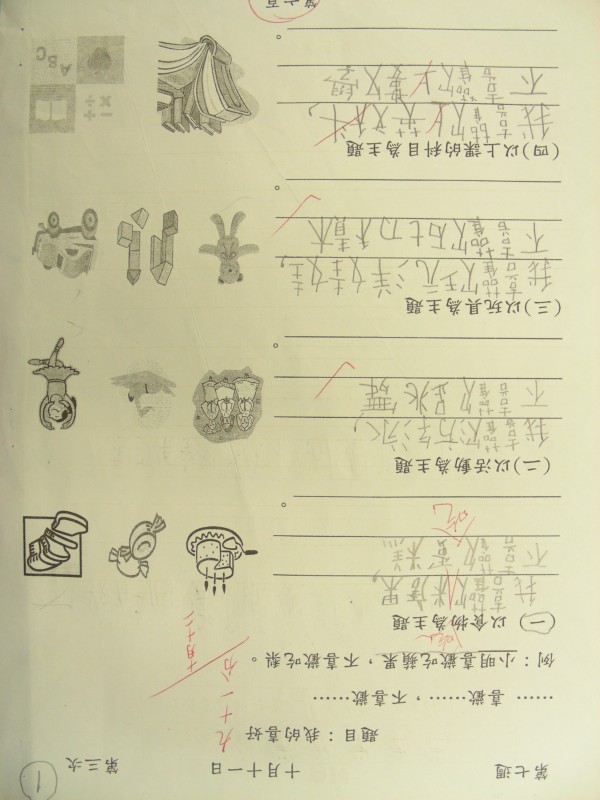 第七週 十月十一日 第三次
1
題目：我的喜好
…… 喜歡………，不喜歡………
九十一分
十月十二
例：小明喜歡吃蘋果，不喜歡吃梨。
(一) 以食物為主題
我喜歡
不喜歡
吃
。
(二)以活動為主題
我喜歡游泳，
不喜歡跳舞
。
(三)以玩具為主題
我喜歡玩洋娃娃，
不喜歡
。
(四)以上課的科目為主題
我喜歡
不喜歡上數學
。
ABC
+ −
× ÷